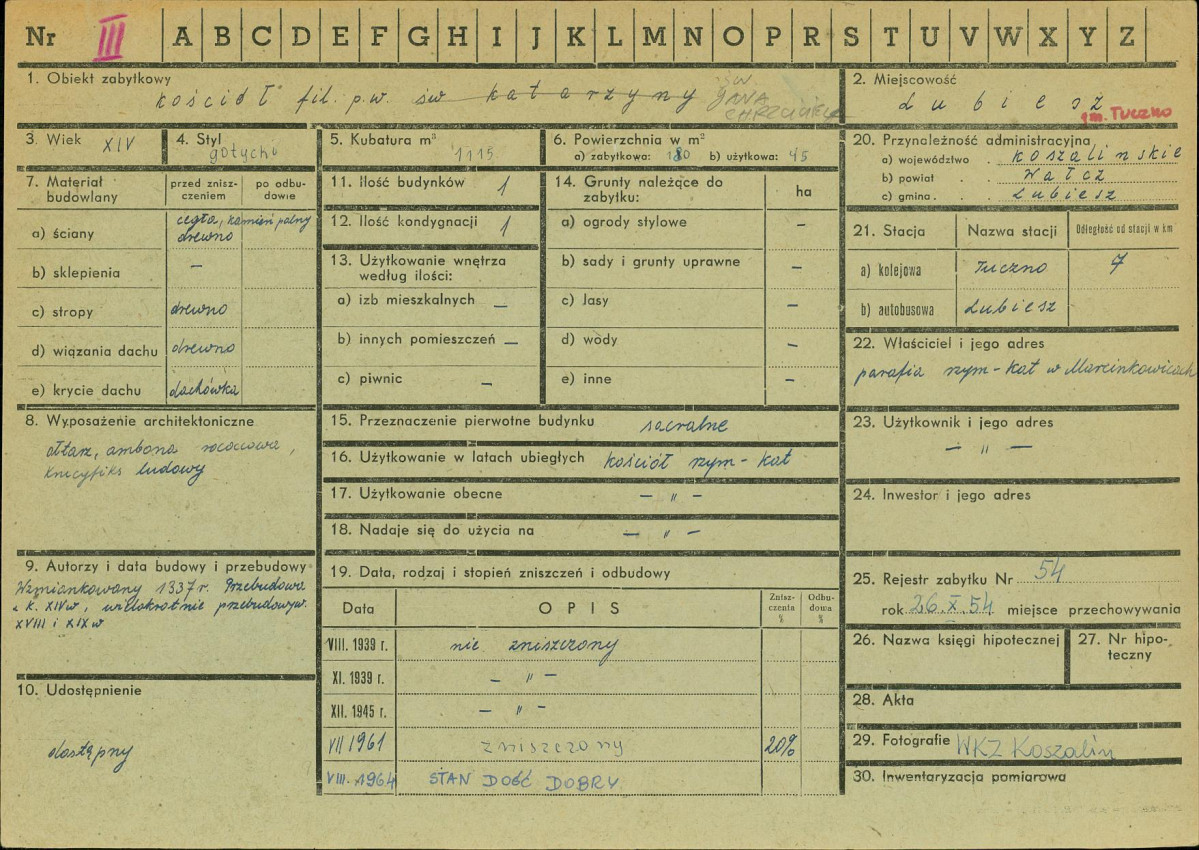 Nr III A B C D E F G H I J K L M N O P R S T U V W X Y Z
1. Obiekt zabytkowy
kościół fil. p.w. św katarzyny św JANA CHRZCICIELA
2. Miejscowość
Lubiesz
gm. Tuczno
3. Wiek XIV
4. Styl gotycki
5. Kubatura m³ 1115
6. Powierzchnia w m²
a) zabytkowa: 180 b) użytkowa: 45
20. Przynależność administracyjna
a) województwo . koszalinskie
b) powiat . . Wałcz
c) gmina . . Lubiesz
7. Materiał budowlany
przed zniszczeniem
po odbudowie
a) ściany cegła, kamień polny
drewno
b) sklepienia –
c) stropy drewno
d) wiązania dachu drewno
e) krycie dachu dachówka
11. Ilość budynków 1
12. Ilość kondygnacji 1
13. Użytkowanie wnętrza
według ilości:
a) izb mieszkalnych –
b) innych pomieszczeń –
c) piwnic –
14. Grunty należące do
zabytku: ha
a) ogrody stylowe –
b) sady i grunty uprawne –
c) lasy –
d) wody –
e) inne –
21. Stacja Nazwa stacji Odległość od stacji w km
a) kolejowa Tuczno 7
b) autobusowa Lubiesz
22. Właściciel i jego adres
parafia rzym-kat w Marcinkowicach
8. Wyposażenie architektoniczne
ołtarz, ambona rococowa,
krucyfiks ludowy
15. Przeznaczenie pierwotne budynku sacralne
16. Użytkowanie w latach ubiegłych kościół rzym-kat
17. Użytkowanie obecne – " –
18. Nadaje się do użycia na – " –
23. Użytkownik i jego adres
– " –
24. Inwestor i jego adres
9. Autorzy i data budowy i przebudowy
Wzmiankowany 1337 r. Przebudowa
k. XIV w, wielokrotnie przebudowyw.
XVIII i XIX w
19. Data, rodzaj i stopień zniszczeń i odbudowy
Data OPIS Zniszczenia % Odbudowa %
VIII. 1939 r. nie zniszczony
XI. 1939 r. – " –
XII. 1945 r. – " –
VII 1961 zniszczony 20%
VIII. 1964 STAN DOŚĆ DOBRY
25. Rejestr zabytku Nr 54
rok 26.X.54 miejsce przechowywania
26. Nazwa księgi hipotecznej
27. Nr hipoteczny
10. Udostępnienie
dostępny
28. Akta
29. Fotografie WKZ Koszalin
30. Inwentaryzacja pomiarowa